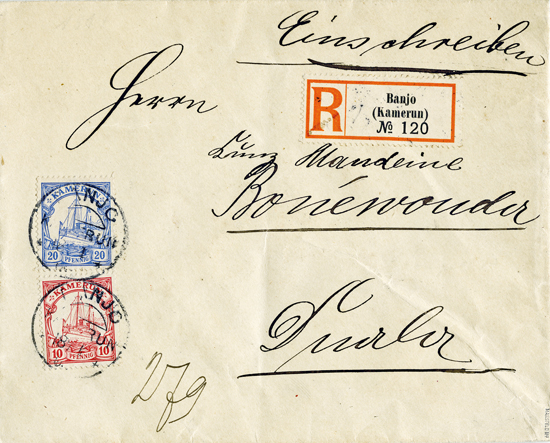 Einschreiben
Herrn
R
Banjo
(Kamerun)
№ 120
Kunz Mandeine
Bonéwonder
Duala
KAMERUN
20 PFENNIG 20
KAMERUN
10 PFENNIG 10
279